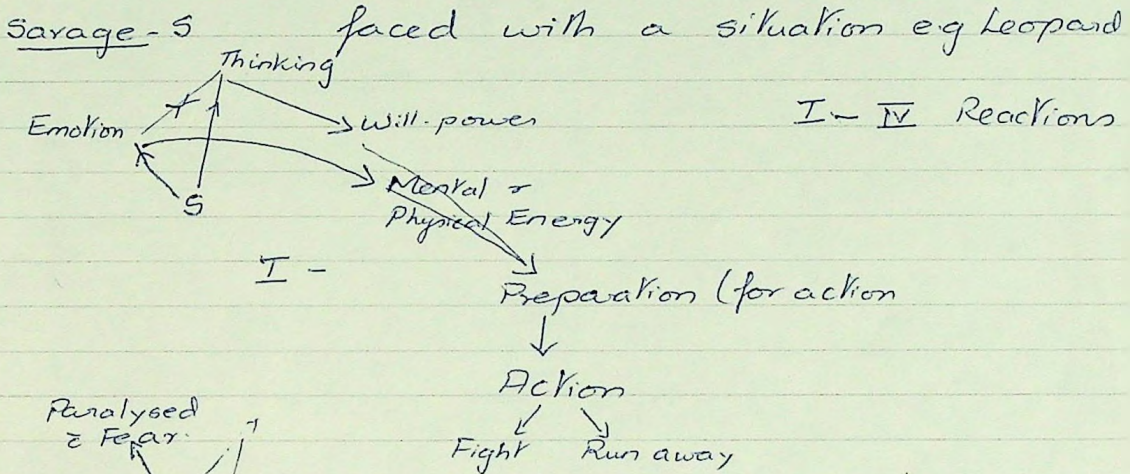 Savage - S faced with a situation e.g Leopard
Thinking
Emotion
Will-power
I - IV Reactions
S
Mental &
Physical Energy
I -
Preparation (for action
Action
Paralysed
c̄ Fear.
Fight Run away